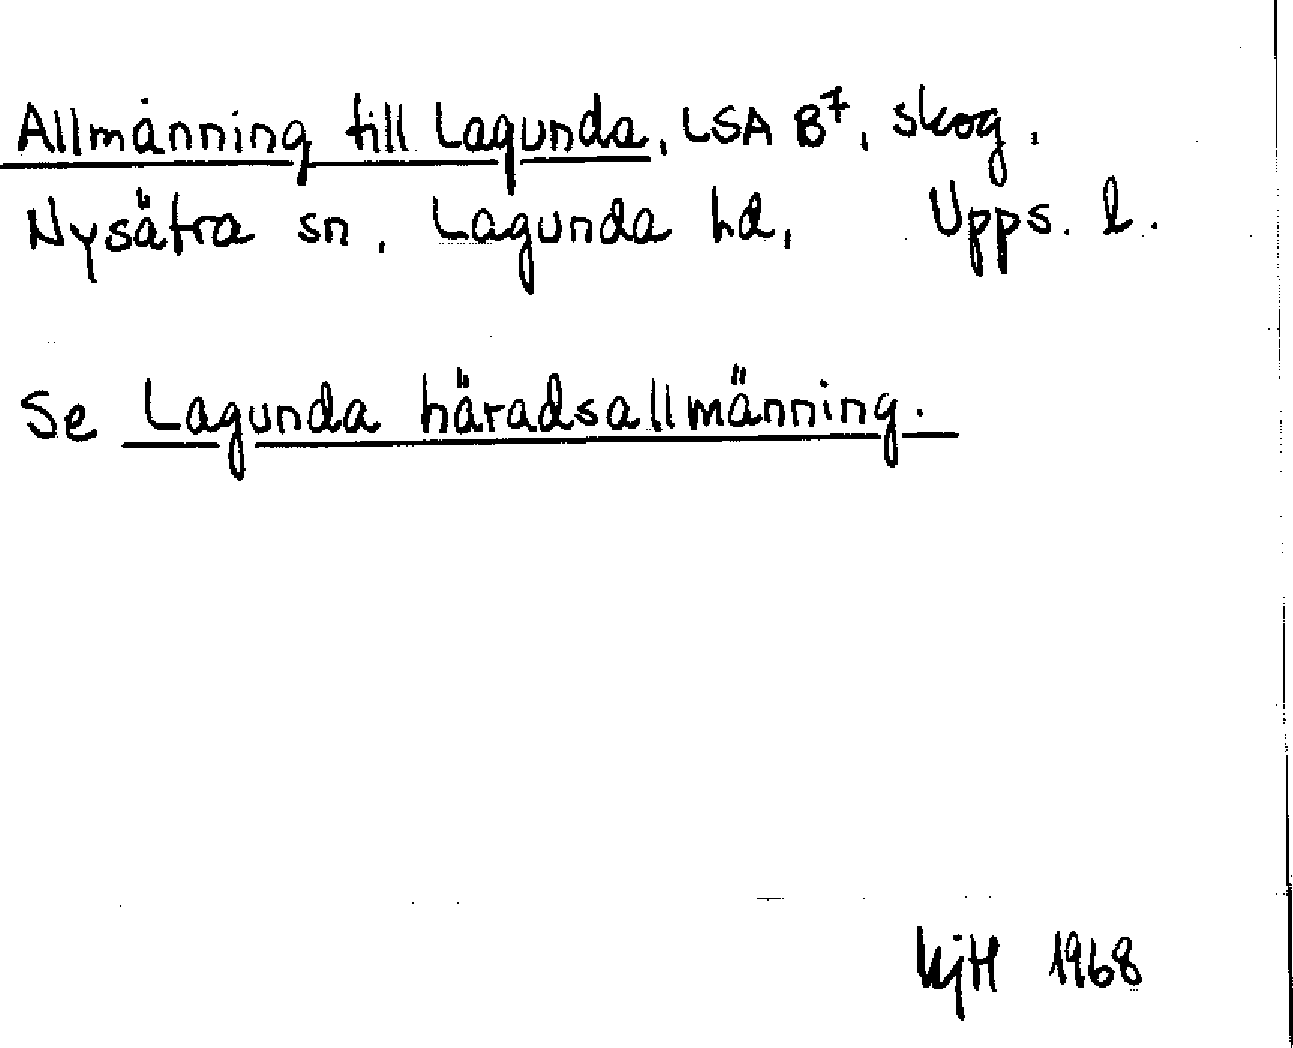 Allmänning till Lagunda, LSA B⁷, skog.
Nysätra sn, Lagunda hd, Upps. l.
Se Lagunda häradsallmänning.
KjH 1968